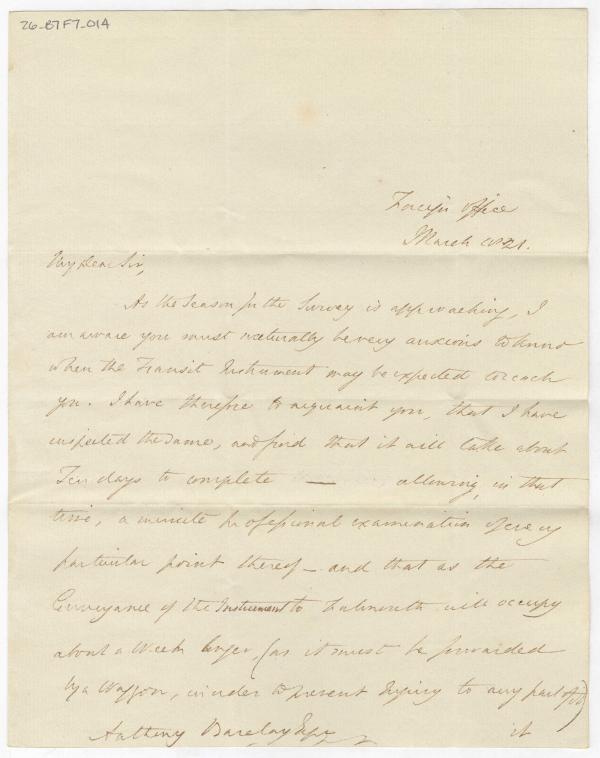 26-B7F7-014
Foreign Office
March 1821.
My dear Sir,
As the Season for the Survey is approaching, I
am aware you must naturally be very anxious to know
when the Transit Instrument may be expected to reach
you. I have therefore to acquaint you, that I have
inspected the Same, and find that it will take about
Ten days to complete — allowing, in that
time, a minute professional examination of every
particular point thereof — and that as the
Conveyance of the Instrument to Falmouth will occupy
about a Week longer, (as it must be forwarded
by a Waggon, in order to prevent injury to any part of it)
Anthony Barclay Esqr
it